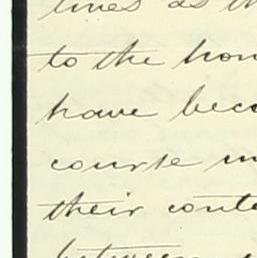 lines as th
to the hon
have beco
course in
their conte
between